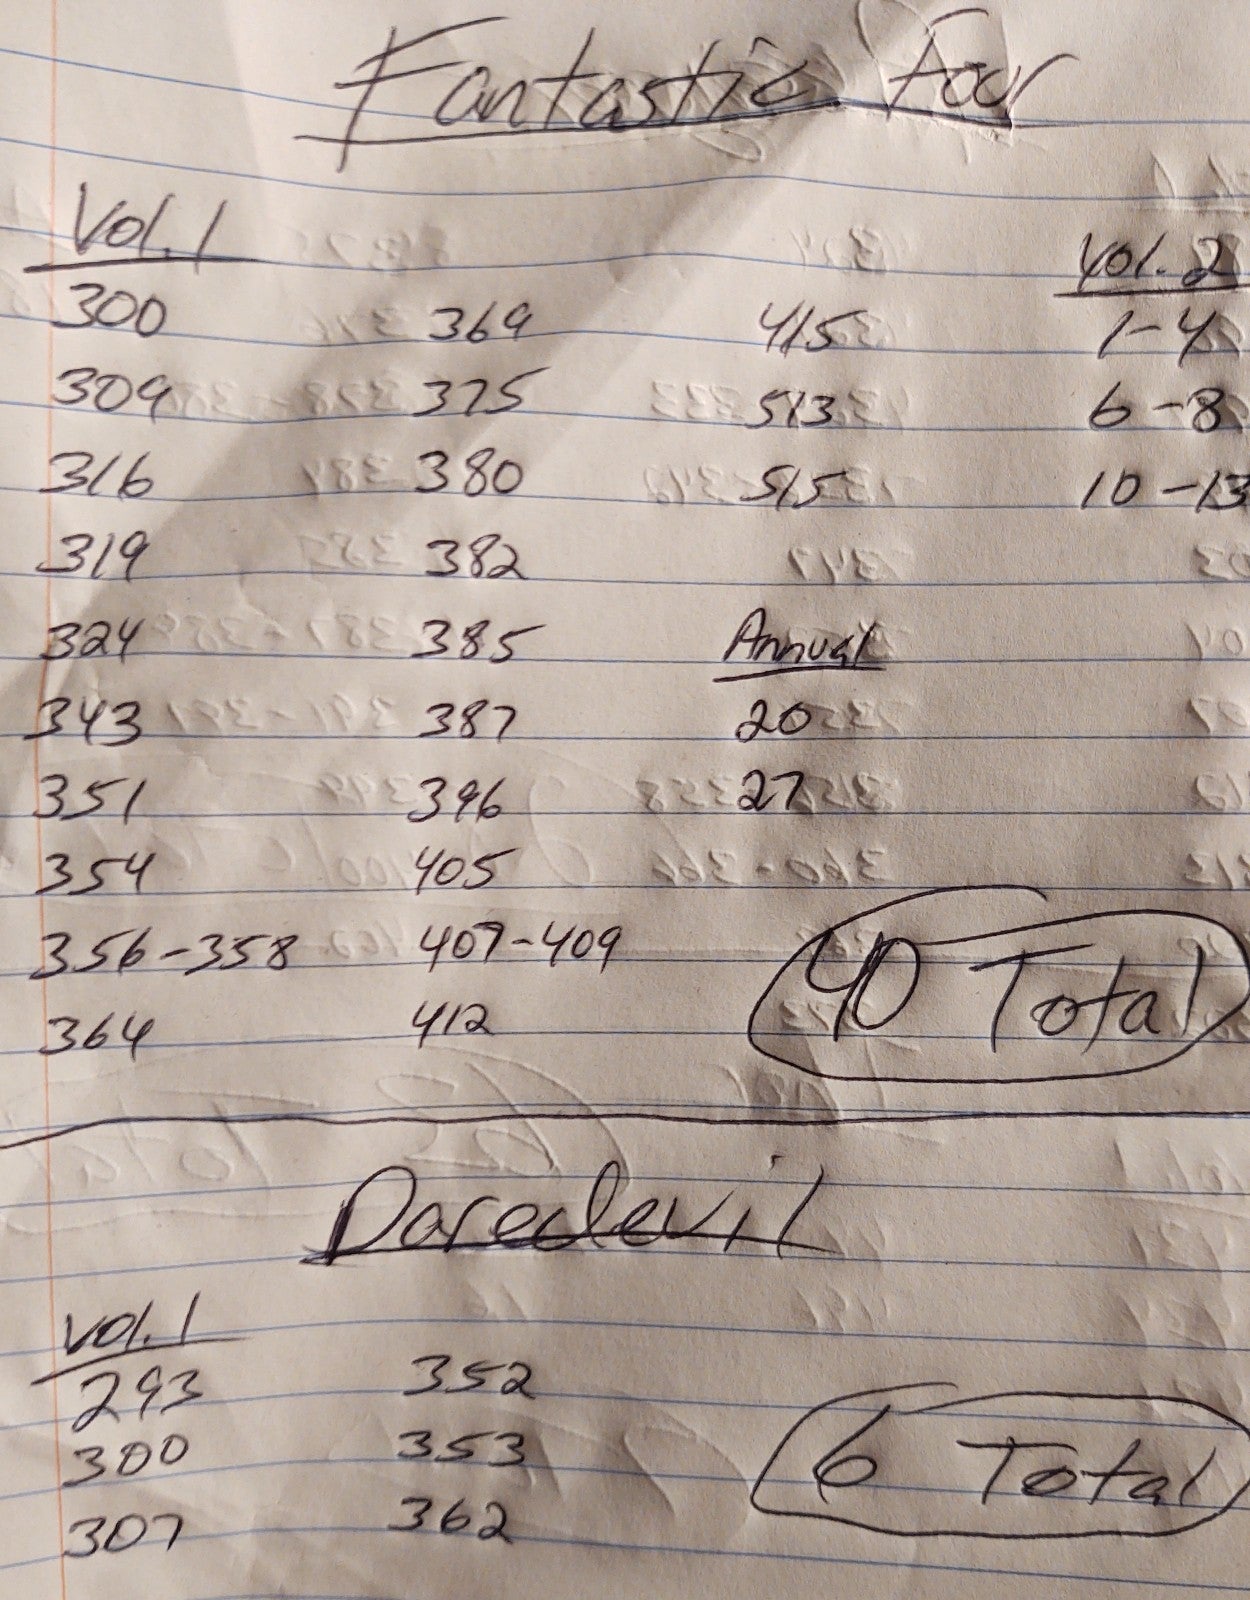 Fantastic Four
Vol. 1
300
309
316
319
324
343
351
354
356-358
364
369
375
380
382
385
387
396
405
407-409
412
415
513
515
Annual
20
27
Vol. 2
1-4
6-8
10-13
40 Total
Daredevil
Vol. 1
293
300
307
352
353
362
6 Total